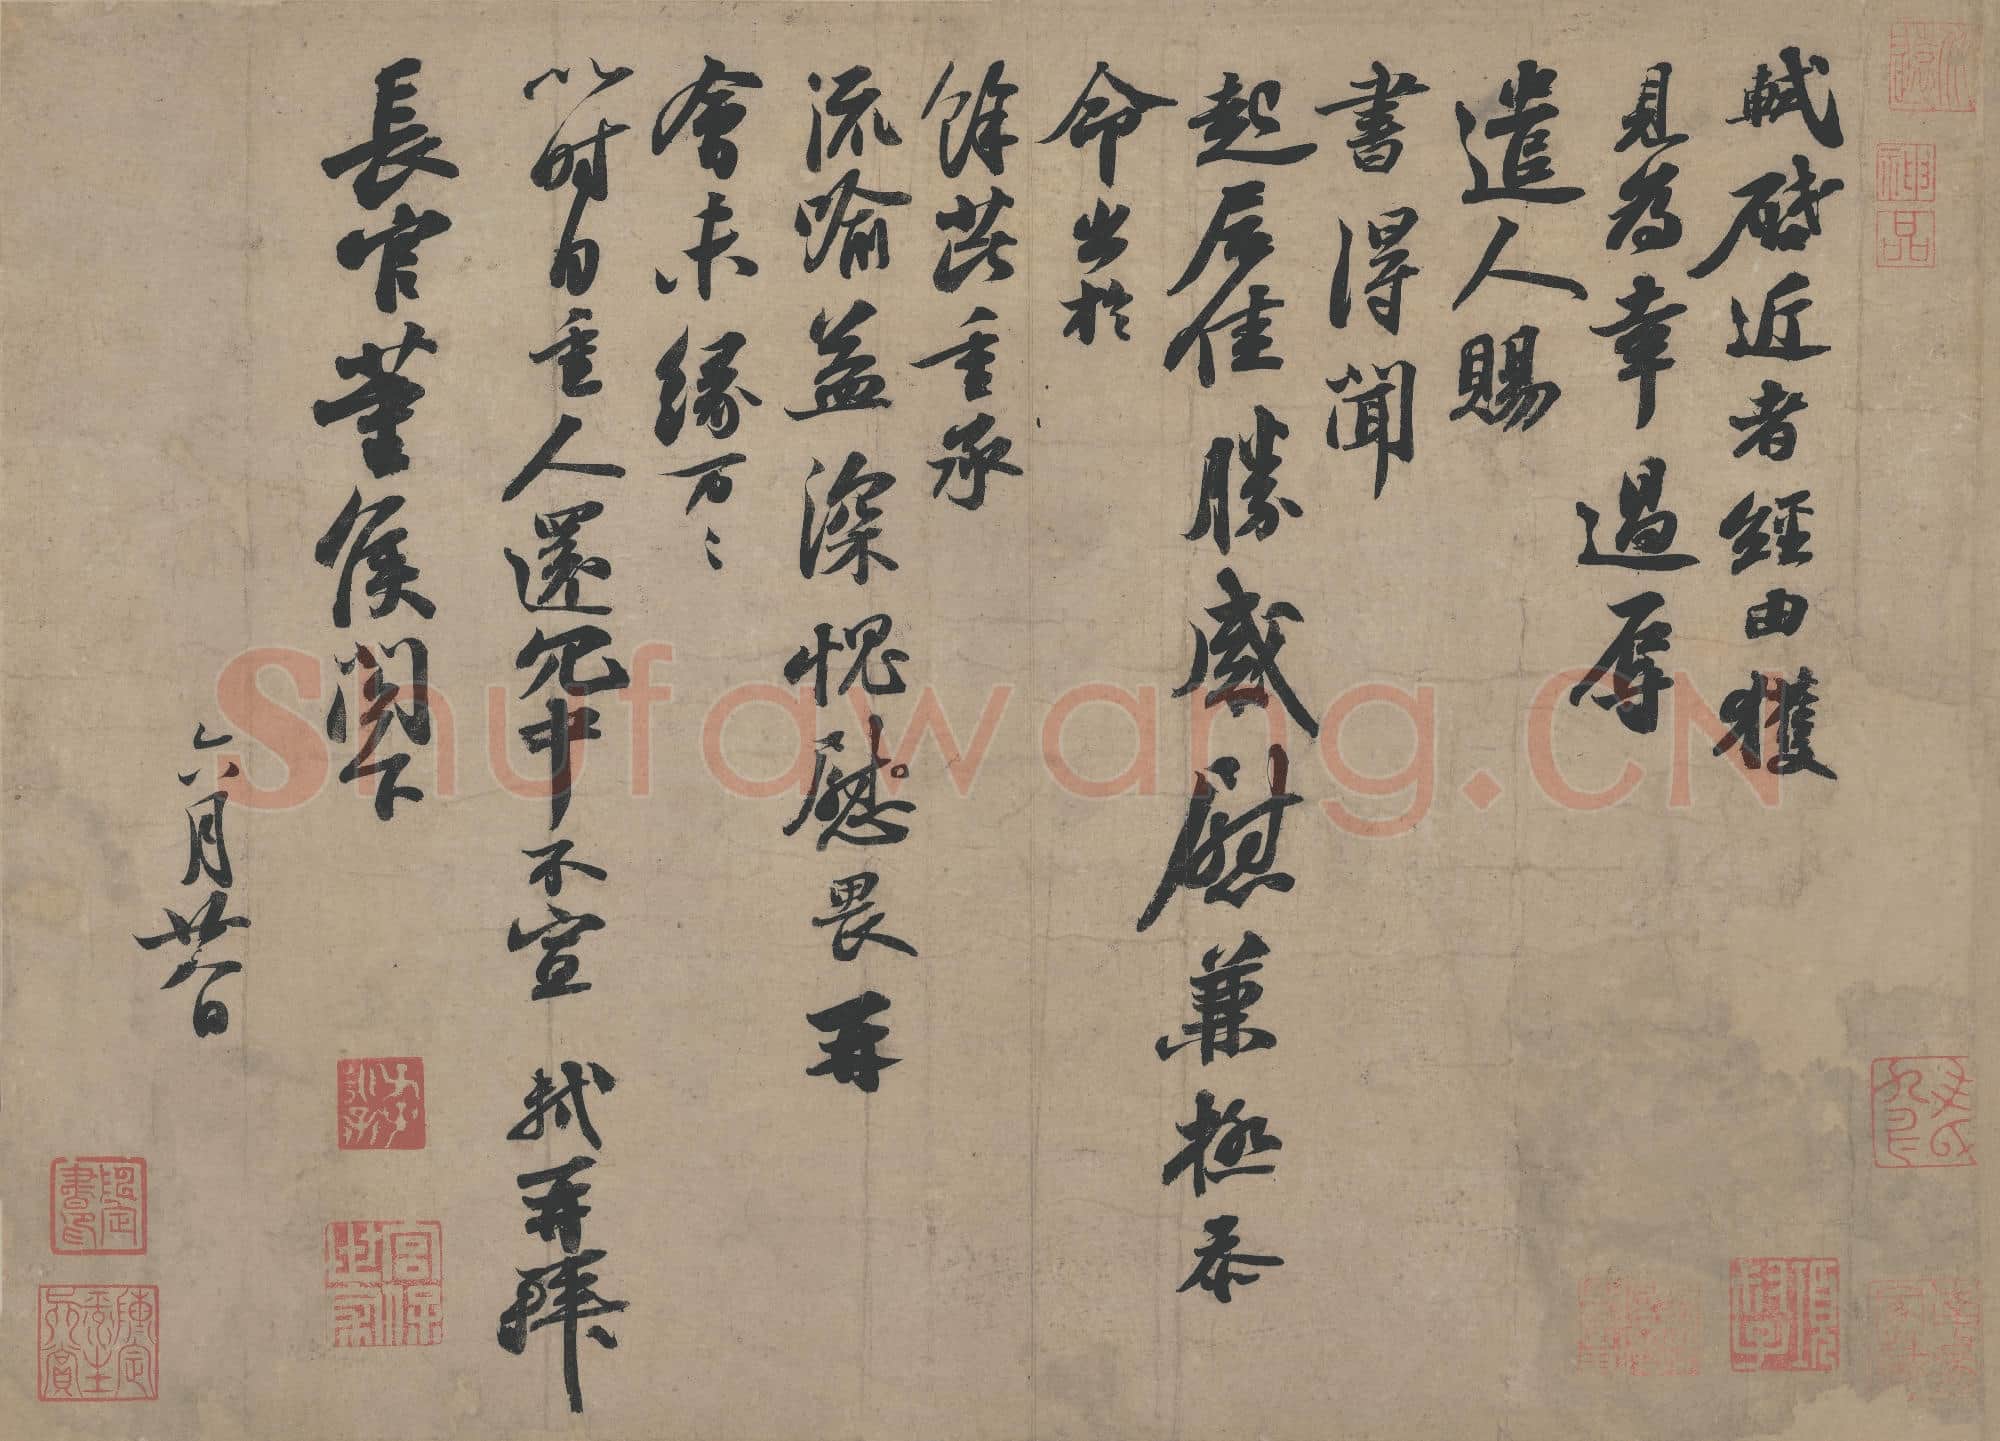 軾啓近者經由獲
見為幸過辱
遣人賜
書得聞
起居佳勝感慰兼極忝
命出於
餘芘重承
流喻益深愧畏再
會未緣萬〻
以時自重人還冗中不宣 軾再拜
長官董侯閤下
六月廿八日
神品
Shufawang.CN